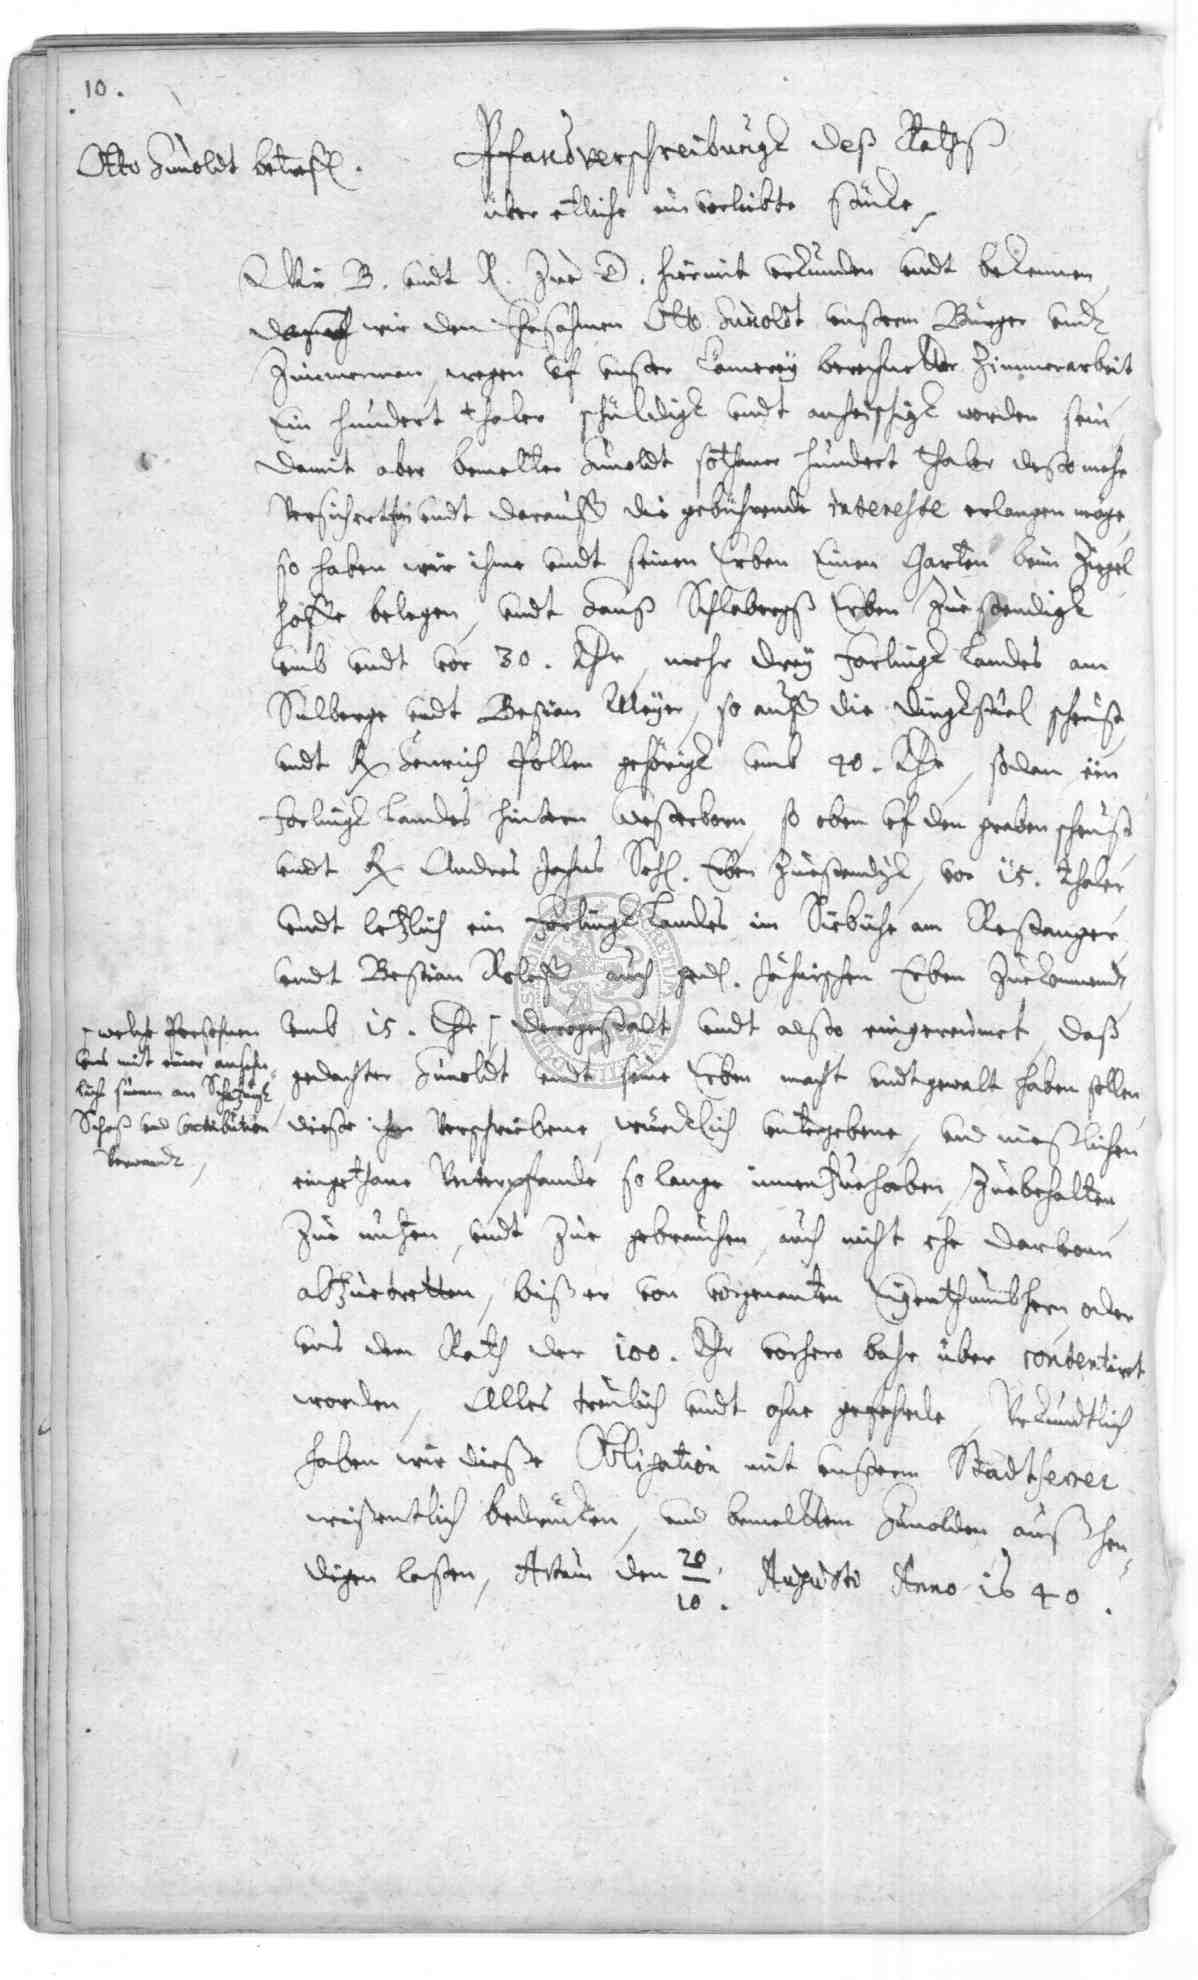 10.
Otto Kunoldt betreff.
Pfandverschreibungk deß Rathß
über etliche einverleibte stücke,
Wir B. undt R. Zue D. hirmit uhrkunden undt bekennen,
wir den Ehrsahmen Otto Kunoldt unserm Bürger undt
Zimmerman, wegen uf unser Cämerey berechneter Zimmerarbeit
Ein hundert thaler schüldigk undt anheischigk worden sein,
Damit aber bemelter Kunoldt sothaner hundert thaler desto mehr
versichert sein undt darauß die gebührende interesse erlangen möge,
so haben wir ihme undt seinen Erben Einen Garten beim Ziegel
hoffe belegen, undt Hanß Erben Zuestendigk
umb undt vor 30. Thlr, mehr drey Forlingk Landes am
Sülberge undt Bestian Meyer, so auff die scheust
undt Henrich gehörigk umb 40. Thlr, sodan ein
Forlingk Landes hinterm Westerborn, so oben uf den graben scheust
undt Andres Jahns Sehl. Erben Zuestendigk, vor 15. Thaler
undt letzlich ein Forlingk Landes im am
undt Bestian auch Erben Zuekommendt,
umb 15. Thlr, dergestalt undt also eingereumet, daß
gedachter Kunoldt undt seine Erben macht undt gewalt haben sollen,
diese ihm verschriebene, würcklich untergebene, und nießlichen
eingethane Unterpfande so lange innen Zuehaben, Zuebehalten,
Zue nutzen, undt Zue gebrauchen, auch nicht ehe darvonn
abZuetretten, biß er von vorgenanten Eigenthumbhern, oder
uns dem Rath der 100. Thlr vorhero bahr über contentirt
worden, Alles treulich undt ohne gefehrde, Uhrkundtlich
haben wir diese Obligation mit unserm Stadt
wißentlich bedrücken, und bemeltem Kunolden auß hen-
digen laßen, Actum den 20/10. Augusti Anno 1640.
welche Persohnen
uns mit einer ansehn-
liche summ an Schatzungk,
Schoß und Contribution
verwandt,